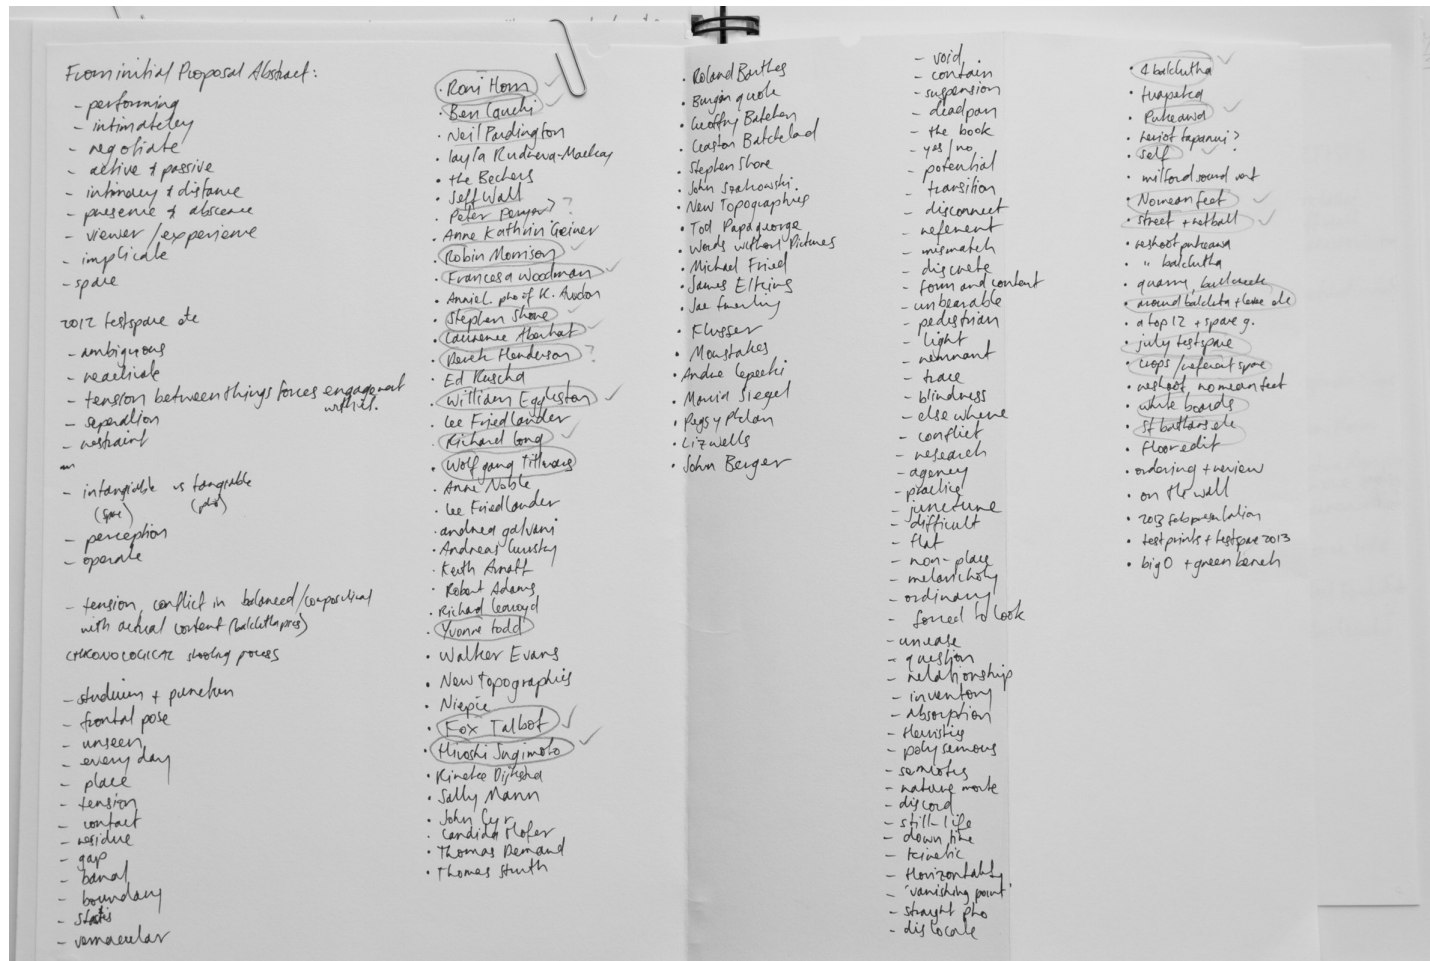 From initial Proposal Abstract:
- performing
- intimateley
- negotiate
- active & passive
- intimacy & distance
- presence & abscence
- viewer/experience
- implicate
- space
2012 testspace etc
- ambiguous
- tension between things forces engagement
with it.
- seperation
- restraint
- intangible vs tangible
(space) (photo)
- perception
- operate
- tension, conflict in balanced/compositional
with actual content (balclutha pics)
CHRONOLOGICAL shooting process
- studium + punctum
- frontal pose
- unseen
- every day
- place
- tension
- contact
- residue
- gap
- banal
- boundary
- stasis
- vernacular
• Roni Horn
• Ben Cauchi
• Neil Pardington
• the Bechers
• Jeff Wall
• Peter Peryer? ?
• Anne Kathrin Greiner
• Robin Morrison
• Francesa Woodman
• Annie L. pho of R. Avedon
• Stephen Shore
• Laurence Aberhart
• Derek Henderson ?
• Ed Ruscha
• William Eggleston
• Lee Friedlander
• Richard Long
• Wolfgang Tillmans
• Anne Noble
• Lee Friedlander
• andrea galvani
• Andreas Gursky
• Keith Arnatt
• Robert Adams
• Richard Learoyd
• Yvonne todd
• Walker Evans
• New topographics
• Niepce
• Fox Talbot
• Hiroshi Sugimoto
• Rineke Dijkstra
• Sally Mann
• John Cyr
• Candida Hofer
• Thomas Demand
• Thomas Struth
• Roland Barthes
• Burgin quote
• Geoffry Batchen
• Gaston Batchelard
• Stephen Shore
• John Szarkowski
• New Topographics
• Tod Papageorge
• Words without Pictures
• Michael Fried
• James Elkins
• Flusser
• Moustakes
• Andre Lepecki
• Marcia Siegel
• Peggy Phelan
• Liz wells
• John Berger
- void
- contain
- suspension
- deadpan
- the book
- yes/no
- potential
- transition
- disconnect
- referent
- mismatch
- discrete
- form and content
- unbearable
- pedestrian
- light
- remnant
- trace
- blindness
- else where
- conflict
- research
- agency
- practice
- juncture
- difficult
- flat
- non-place
- melancholy
- ordinary
- forced to look
- unease
- question
- relationship
- inventory
- absorption
- Heuristics
- polysemous
- semiotics
- nature morte
- discord
- still-life
- down time
- kinetic
- Horizontality
- 'vanishing point'
- straight pho
- dislocate
• tuapeka
• Pukeawa
• heriot tapanui?
• self
• milford sound vent
• No mean feet
• street + netball
• reshoot pukeawa
• " balclutha
• around balcluta + leave etc
• a top 12 + space g.
• july testspace
• crops/referent space
• reshoot no mean feet
• white boards
• St bathans etc
• floor edit
• ordering + review
• on the wall
• 2013 feb presentation
• test prints + testspace 2013
• big O + green bench